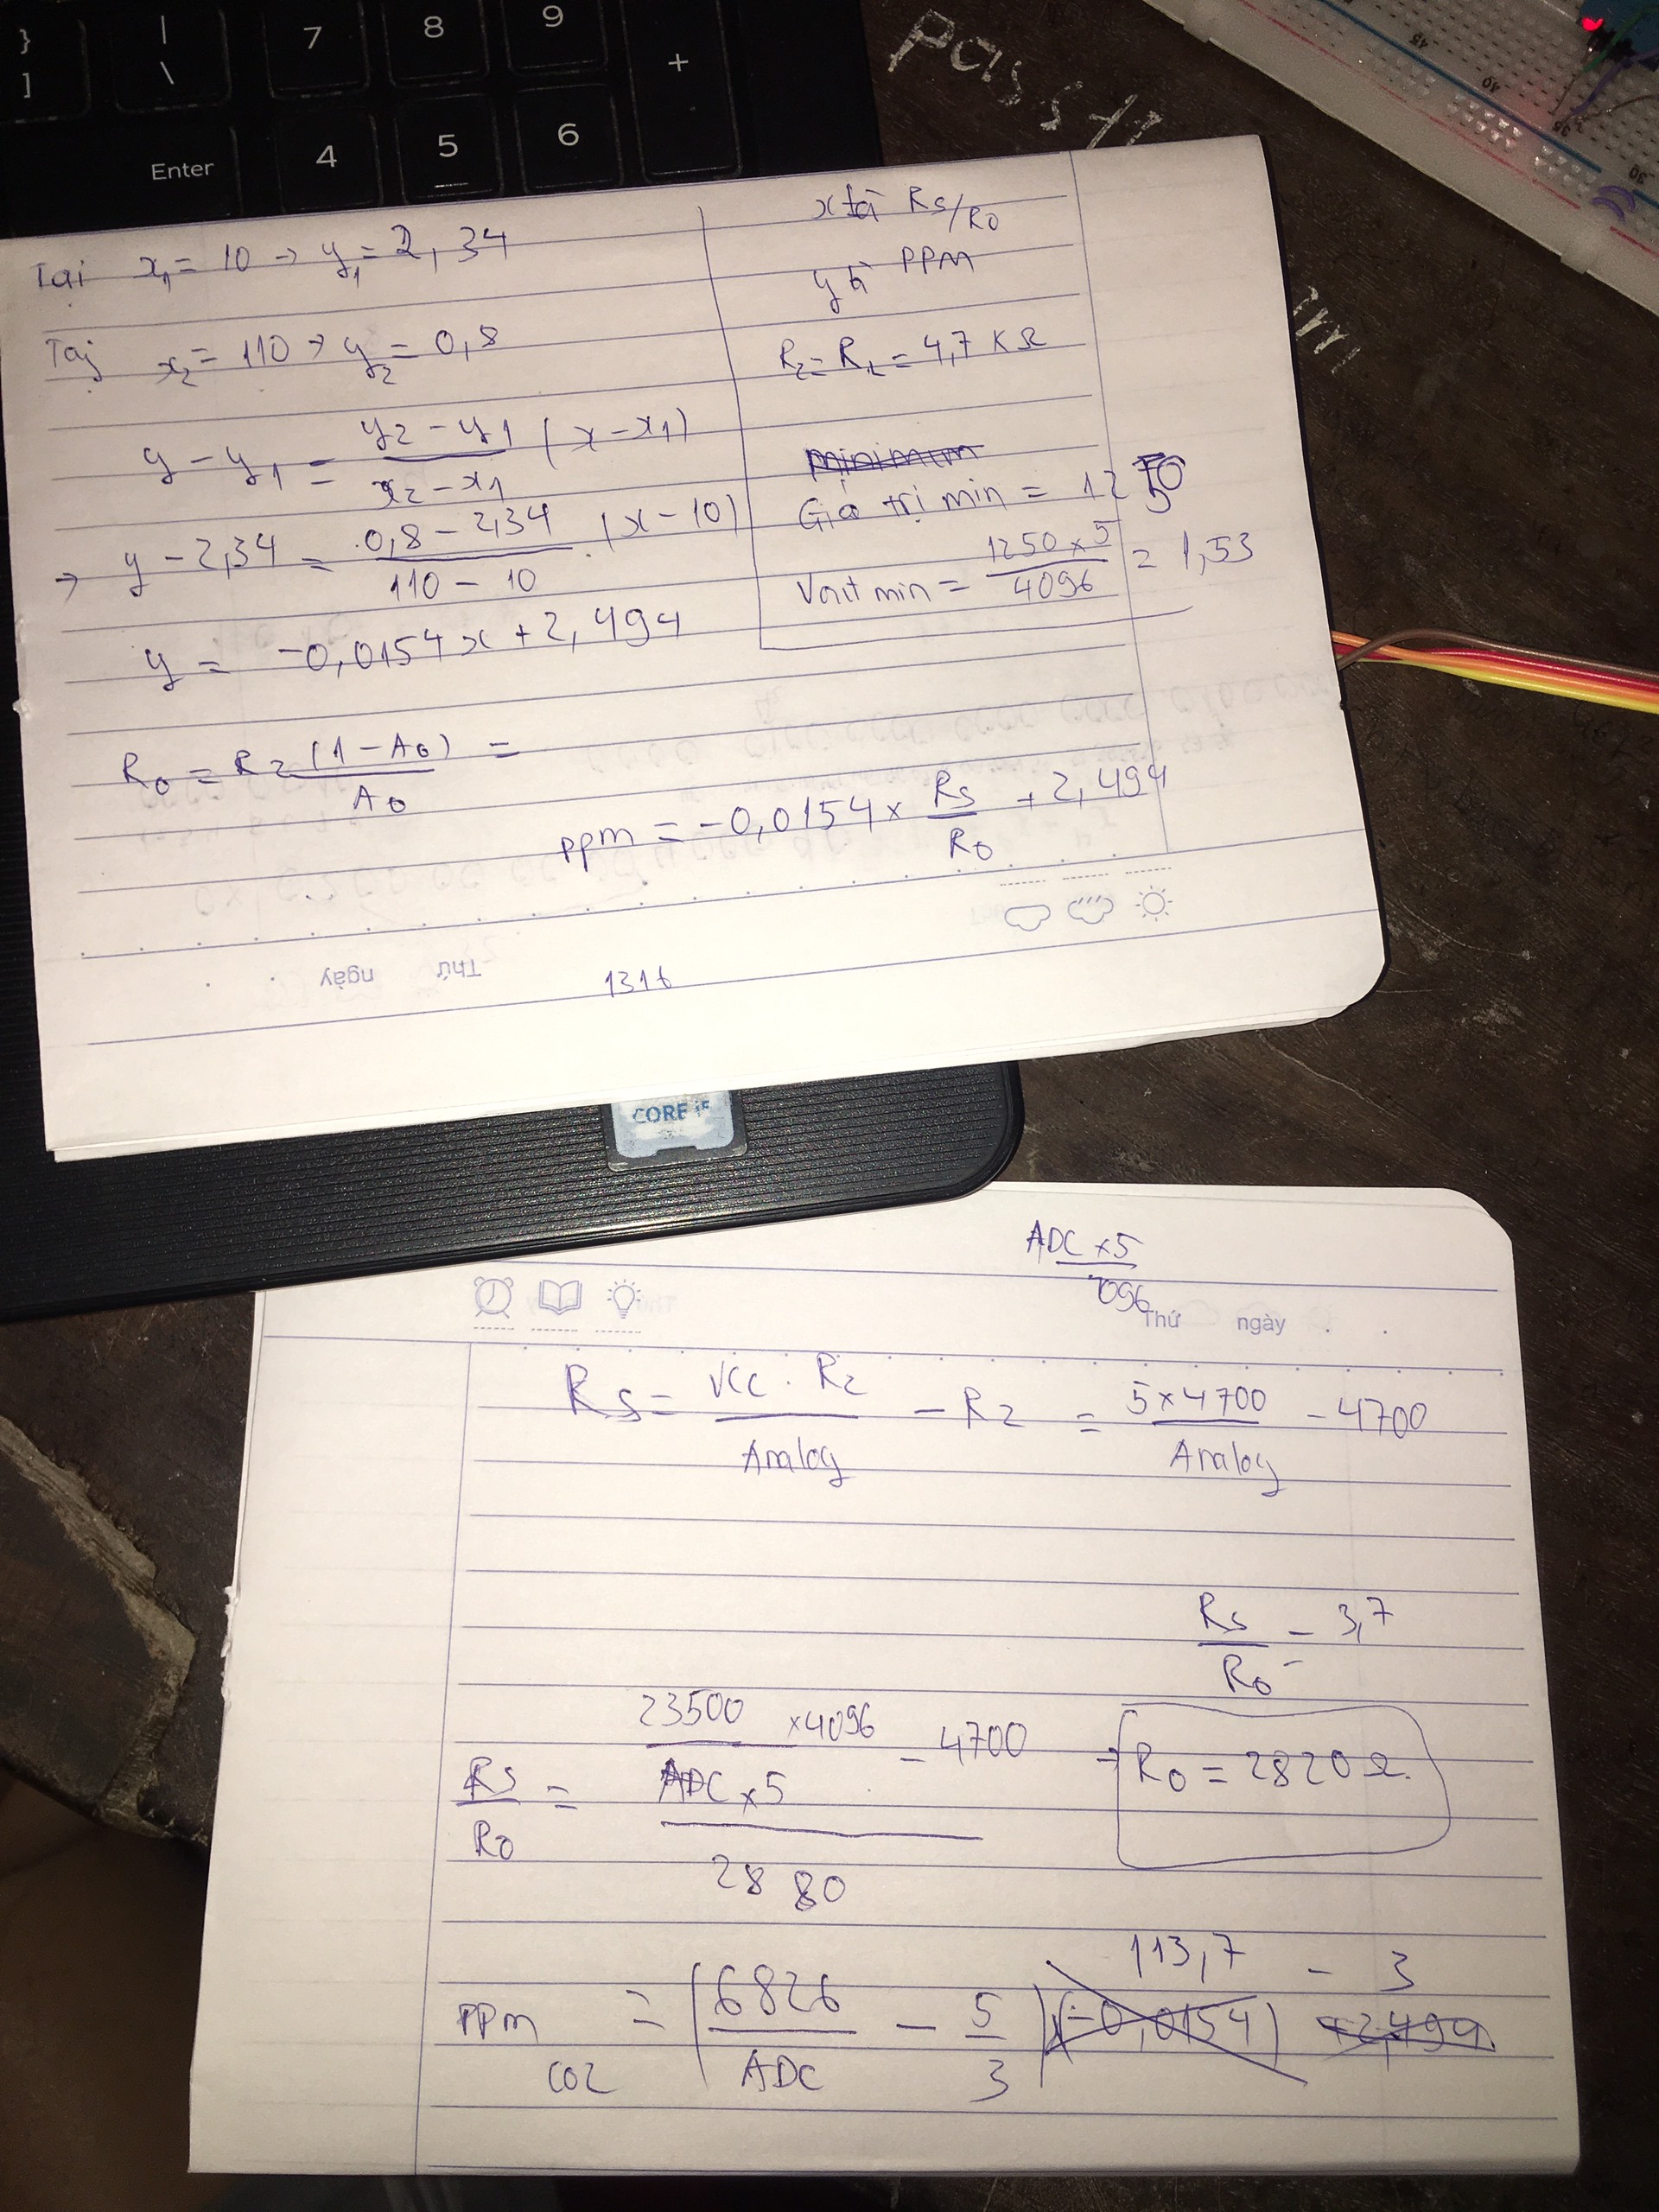 }
]
|
\
7
8
9
+
Enter
4
5
6
45
40
35
30
Tại x₁ = 10 → y₁ = 2,34
Tại x₂ = 110 → y₂ = 0,8
y - y₁ = (y₂ - y₁)/(x₂ - x₁) (x - x₁)
→ y - 2,34 = (0,8 - 2,34)/(110 - 10) . (x - 10)
y = -0,0154x + 2,494
x là Rs/R0
y là PPM
R2 = RL = 4,7 KΩ
minimum
Giá trị min = 1250
Vout min = (1250 x 5)/4096 = 1,53
R0 = R2 (1 - A0)/A0 =
ppm = -0,0154 x Rs/R0 + 2,494
Thứ ngày
CORE i5
ADC x 5
Thứ ngày
Rs = (Vcc . R2)/Analog - R2 = (5 x 4700)/Analog - 4700
Rs/R0 = 3,7
→ R0 = 2820 Ω.
Rs/R0 = (23500 x 4096/(ADC x 5) - 4700)/2880
113,7 - 3
PPm CO2 = (6826/ADC - 5/3) x (-0,0154) + 2,494